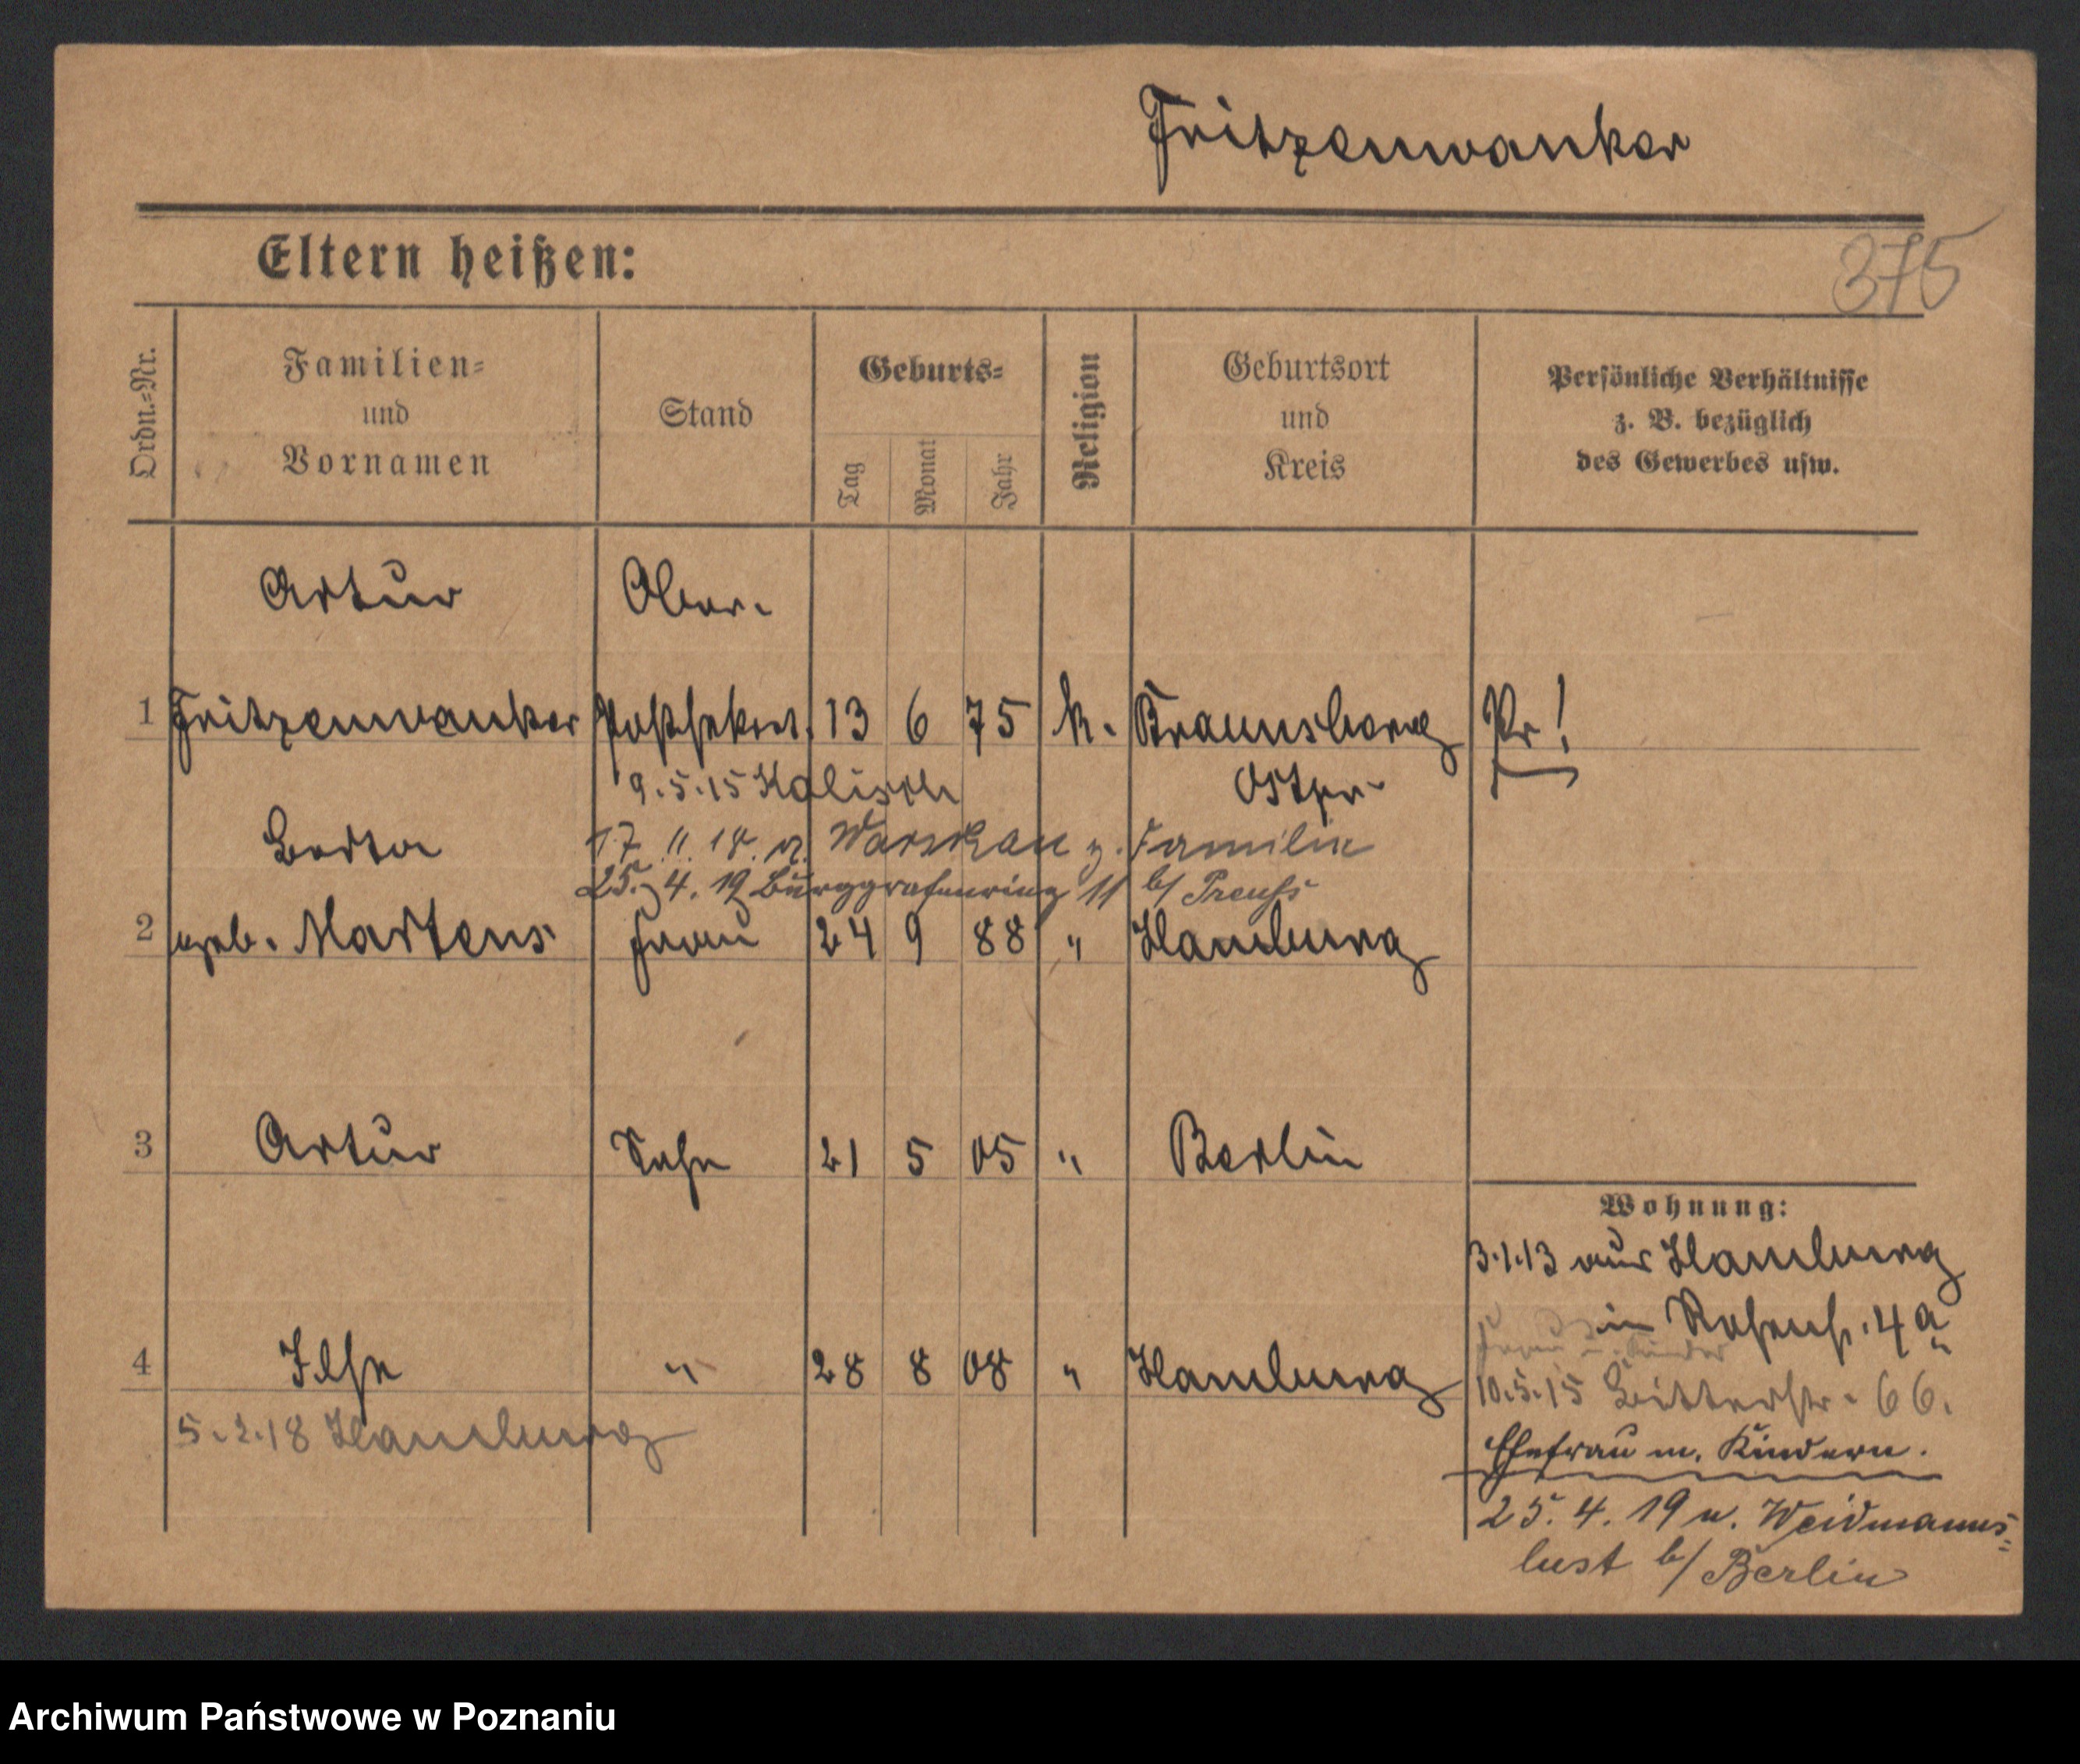 Fritzenwanker
Eltern heißen:
375
Ordn.-Nr.
Familien-
und
Vornamen
Stand
Geburts-
Tag
Monat
Jahr
Religion
Geburtsort
und
Kreis
Persönliche Verhältnisse
z. B. bezüglich
des Gewerbes usw.
Artur Ober-
1 Fritzenwanker Postsekret. 13 6 75 k. Braunsberg Pr!
9.5.15 Kalisch Ostpr.
Berta
17. 11. 18. v. Warschau z. Familie
25. 4. 19 Burggrafenring 11 b/ Preuß
2 geb. Martens Frau 24 9 88 " Hamburg
3 Artur Sohn 21 5 05 " Berlin
Wohnung:
3.1.13 aus Hamburg
in 4a
Frau u. Kinder
4 Ilse " 28 8 08 " Hamburg
10.5.15 Bitterstr. 66.
5.2.18 Hamburg
Ehefrau m. Kindern.
25. 4. 19 n. Weidmanns-
lust b/ Berlin
Archiwum Państwowe w Poznaniu